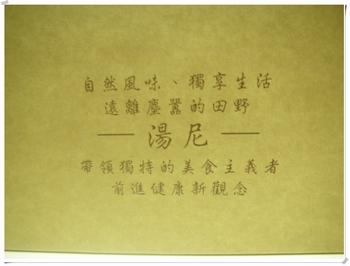 自然風味、獨享生活
遠離塵囂的田野
湯尼
帶領獨特的美食主義者
前進健康新觀念